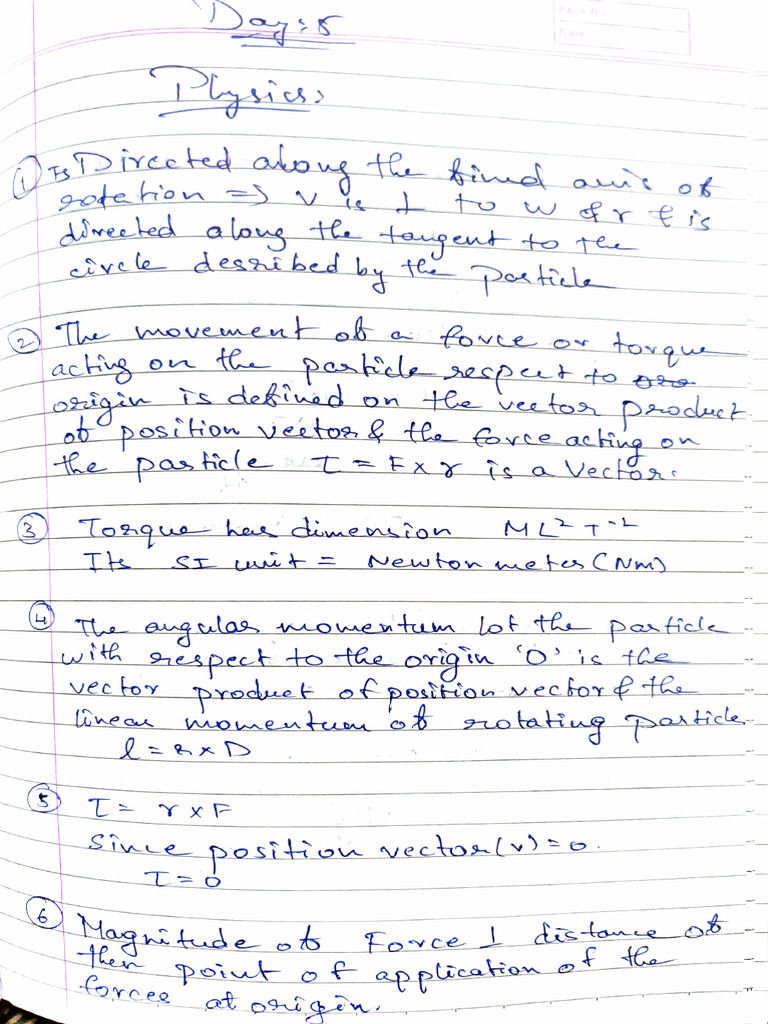 Day:5
Page No.
Date
Physics:
① Is Directed along the fixed axis of
rotation => v is ⊥ to w & r & is
directed along the tangent to the
circle desribed by the particle
② The movement of a force or torque
acting on the particle respect to oro
origin is defined on the vector product
of position vector & the force acting on
the particle τ = F x r is a vector.
③ Torque has dimension ML² T⁻²
Its SI unit = Newton meter (Nm)
④ The angular momentum l of the particle
with respect to the origin 'O' is the
vector product of position vector & the
linear momentum of rotating particle
l = r x D
⑤ τ = r x F
Since position vector (v) = 0.
τ = 0
⑥ Magnitude of Force ⊥ distance of
then point of application of the
forces at origin.